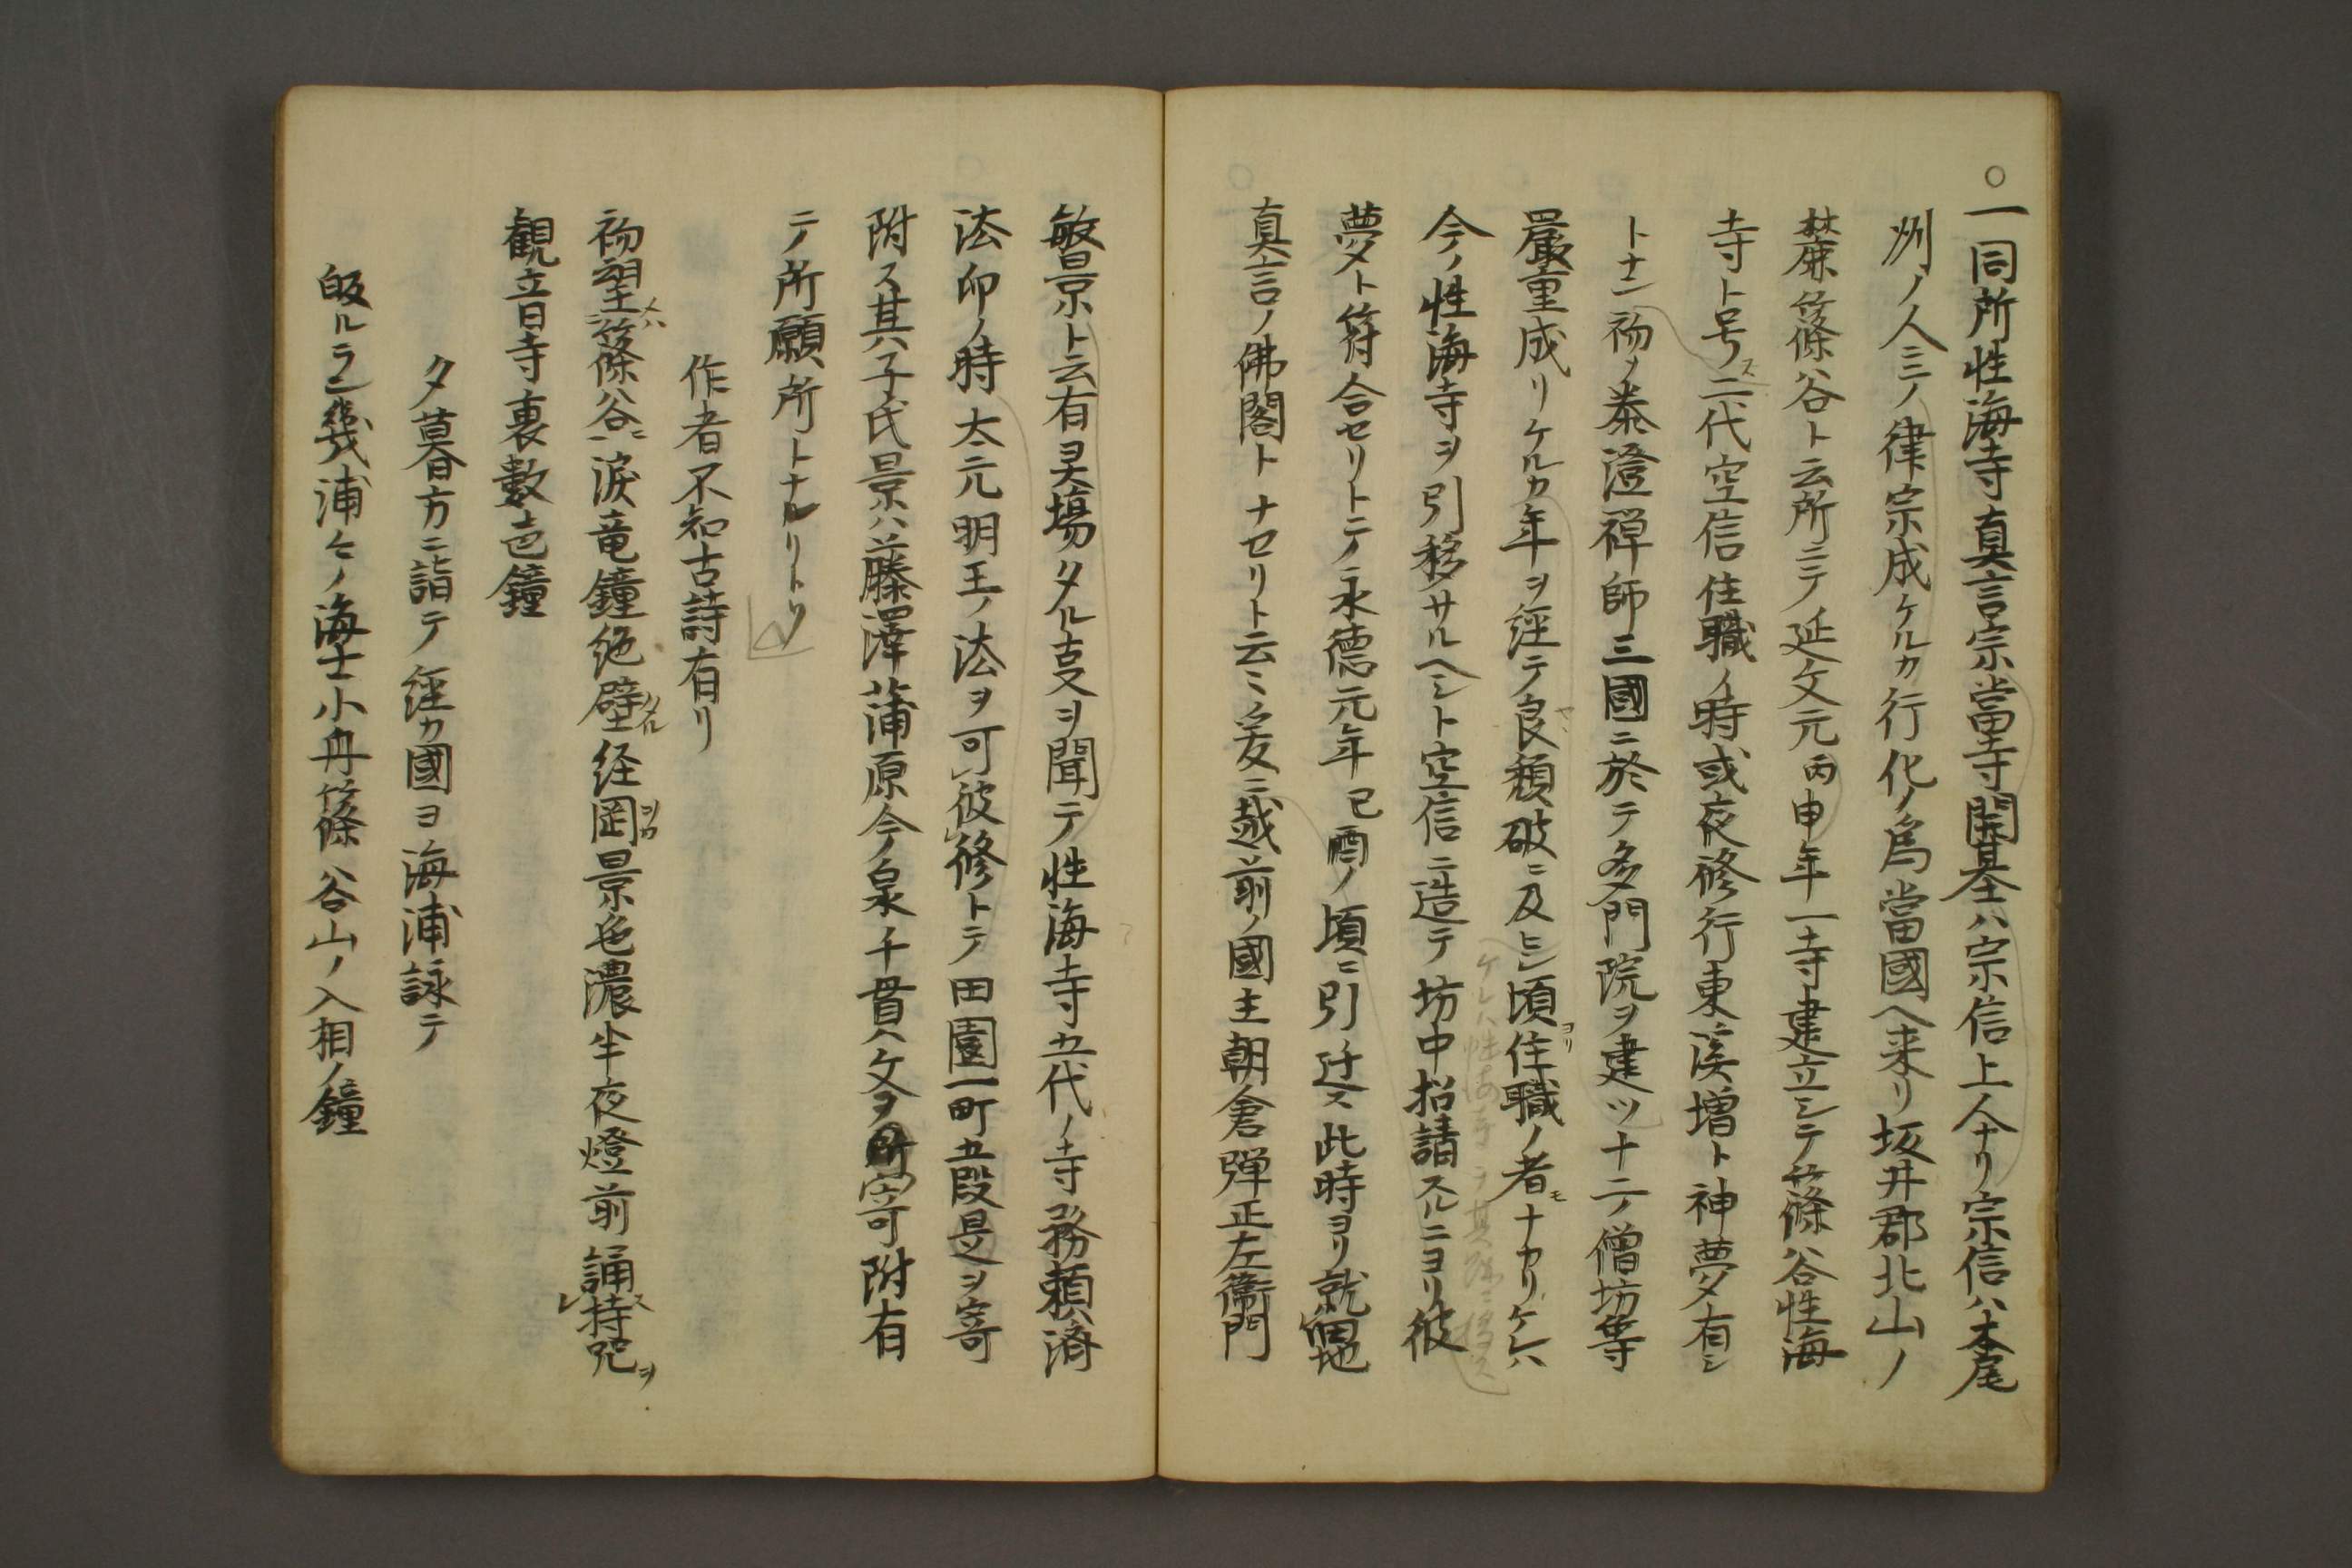 ○一同所性海寺真言宗當寺開基ハ宗信上人ナリ宗信ハ木尾
州ノ人ニ〆律宗成ケルカ行化ノ為當國へ来リ坂井郡北山ノ
禁廉篠谷ト云所ニテ延文元丙申年一寺建立シテ篠谷性海
寺ト号ス二代空信住職ノ時或夜修行東溪増ト神夢有シ
トナン初メ泰澄禅師三國ニ於テ多門院ヲ建ツ十二ノ僧坊等
嚴重成リケルカ年ヲ經テ良頽破ニ及ヒシ頃ヨリ住職ノ者モナカリケレハ
今ノ性海寺ヲ引移サルヘシト空信ニ造テ坊中招請スルニヨリ彼
夢ト符合セリトテ永德元年己酉ノ頃ニ引迁ス此時ヨリ就個地
真言ノ佛閣トナセリト云ミ爰ニ越前ノ國主朝倉彈正左衞門
敏景ト云有灵塲タル叓ヲ聞テ性海寺五代ノ寺務頼済
法印ノ時太元明王ノ法ヲ可彼修トテ田園一町五段是ヲ寄
附ス其子氏景ハ藤澤蒲原今泉千貫ハケ又ヲ寄附有
テノ所願所トナルリトソ
作者不知古詩有リ
初望メハ篠谷ニ涙竜鐘絶壁タル経岡ヲカ景色濃半夜燈前誦持ス咒ヲ
観音寺裏數声鐘
夕暮方ニ詣テ經カ國ヨ海浦詠テ
皈ルラン幾浦々ノ海士小舟篠谷山ノ入相ノ鐘